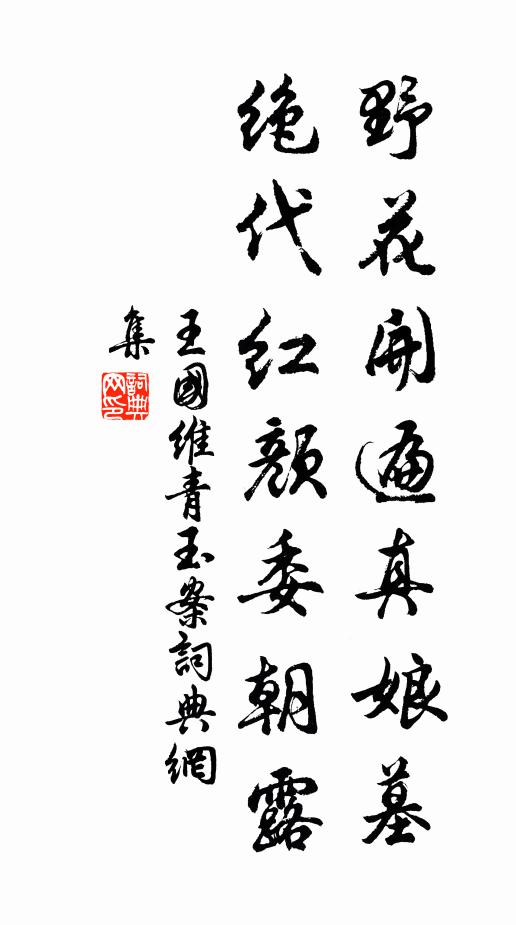 野花開遍真娘墓
绝代红颜委朝露
王國維青玉案詞典網
集
詞典
网印